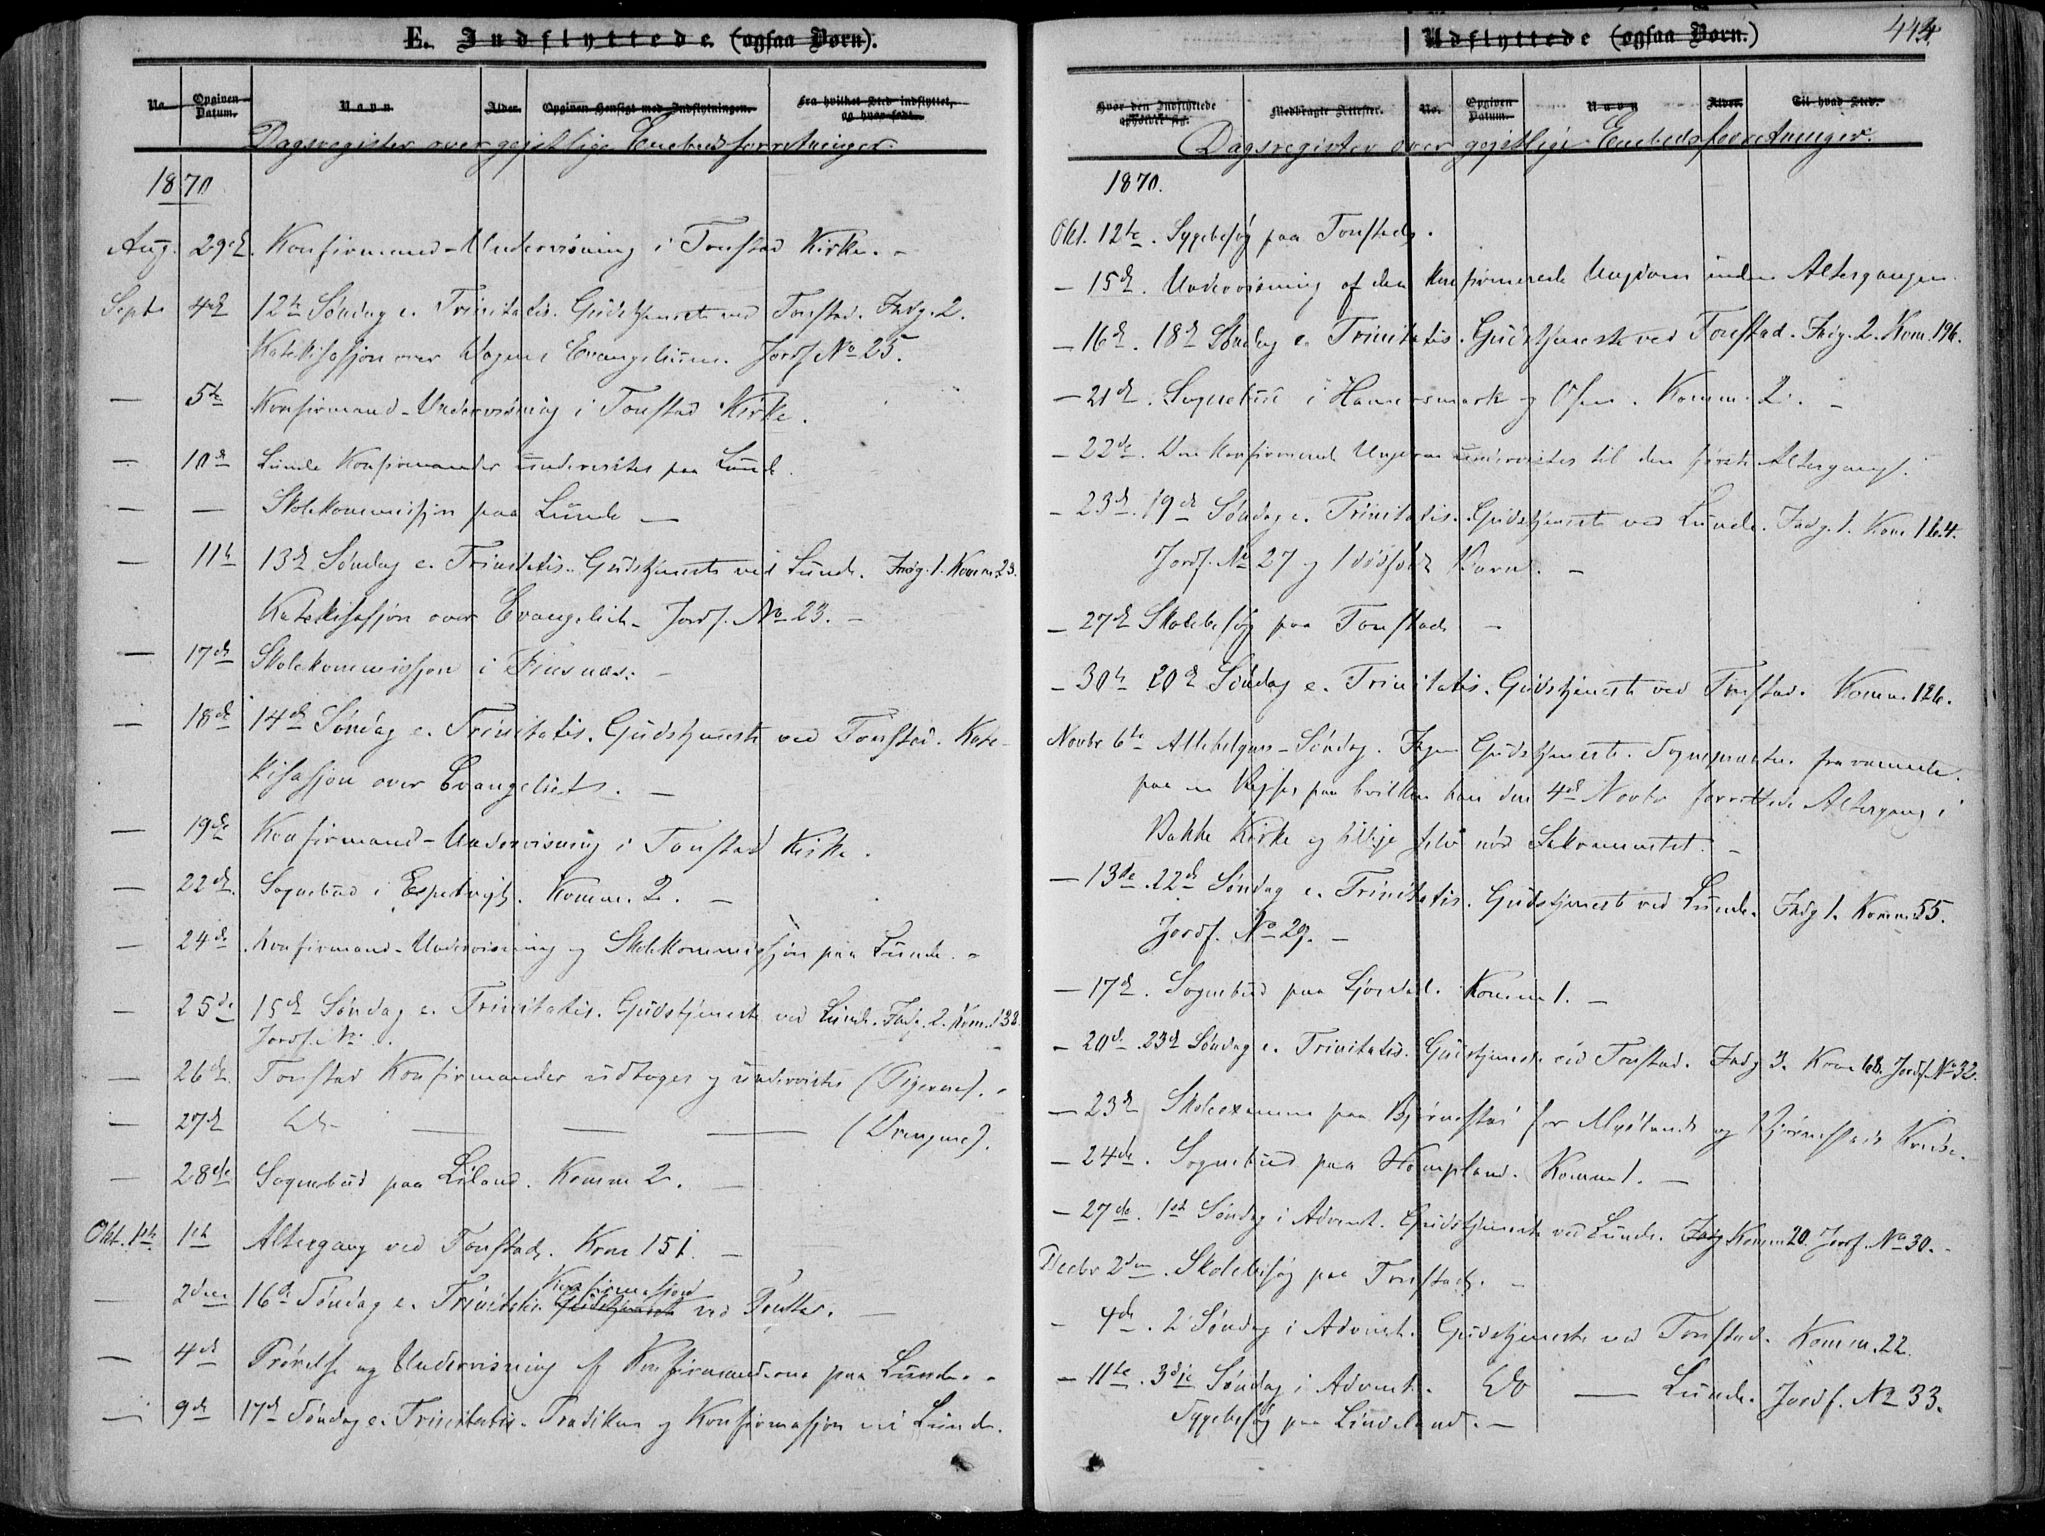 E. Indflyttede (ogsaa Børn).
No. Opgiven Datum. Navn Alder. Opgiven Hensigt med Indflytningen. Fra hvilket Sted indflyttet, og hvor født.
Dagsregister over gejstlige Embedsforretninger.
1870
Aug. 29de Konfirmand-Undervisning i Tonstad Kirke. -
Septr 4de 12te Søndag e. Trinitatis. Gudstjeneste ved Tonstad. Indg. 2.
Katekisasjon over Dagens Evangelium. Jordf. No 25.
— 5te Konfirmand-Undervisning i Tonstad Kirke.
— 10de Lunde Konfirmander undervistes paa Lunde.
— — Skolekommissjon paa Lunde —
— 11te 13de Søndag e. Trinitatis. Gudstjeneste ved Lunde. Indg. 1. Komm. 23.
Katekisasjon over Evangeliet. Jordf. No 23. -
— 17de Skolekommissjon i
— 18de 14de Søndag e. Trinitatis. Gudstjeneste ved Tonstad. Kate-
kisasjon over Evangeliet. —
— 19de Konfirmand-Undervisning i Tonstad Kirke.
— 22de Sognebud i Espetvejt. Komm. 2. —
— 24de Konfirmand-Undervisning og Skolekommissjon paa Lunde. -
— 25de 15de Søndag e. Trinitatis. Gudstjeneste ved Lunde. Indg. 2. Kom. 132
Jordf. No
— 26de Tonstad Konfirmander udtoges og undervistes (Pigerne). -
— 27de Do — — — (Drengene).
— 28de Sognebud paa Liland. Komm 2. —
Okt. 1ste 1ste Altergang ved Tonstad. Kom 151. —
Konfirmasjon
— 2den 16de Søndag e. Trinitatis. Gudstjeneste ved Tonstad. —
— 4de Prøvelse og Undervisning af Konfirmanderne paa Lunde. -
— 9de 17de Søndag e. Trinitatis. Prædiken og Konfirmasjon ved Lunde.
Udflyttede (ogsaa Børn.)
Hvor den Indflyttede opholder sig. Medbragte Attester. No. Opgiven Datum. Navn Alder. Til hvad Sted.
Dagsregister over gejstlige Embedsforretninger.
1870.
Okt. 12te. Sygebesøg paa Tonstad.
— 15de. Undervisning af den konfirmerede Ungdom inden Altergangen.
— 16de. 18de Søndag e. Trinitatis. Gudstjeneste ved Tonstad. Indg. 2. Kom. 196.
— 21de. Sognebud i og Osen. Komm. 2. —
— 22de. Den konfirmerede Ungdom undervistes til den første Altergang.
— 23de. 19de Søndag e. Trinitatis. Gudstjeneste ved Lunde. Indg. 1. Kom 164.
Jordf. No 27 og 1 dødfødt Barn. —
— 27de Skolebesøg paa Tonstad —
— 30te 20de Søndag e. Trinitatis. Gudstjeneste ved Tonstad. Komm. 126.
Novbr 6te Allehelgens-Søndag. Ingen Gudstjeneste. Sognepræsten fraværende
paa en Rejse, paa hvilken han den 4de Novbr forrettede Altergang i
Bakke Kirke og tillige selv nød Sakramentet. —
— 13de. 22de Søndag e. Trinitatis. Gudstjeneste ved Lunde. Indg 1. Komm 55.
Jordf. No 29. —
— 17de. Sognebud paa Komm 1. —
— 20de. 23de Søndag e. Trinitatis. Gudstjeneste ved Tonstad. Indg 3. Kom 68. Jordf. No 32.
— 23de Skoleexamen paa Bjørnestad for og Bjørnestads Kredse.
— 24de. Sognebud paa Hompland. Komm 1. —
— 27de. 1ste Søndag i Advent. Gudstjeneste ved Lunde. Indg Komm 20. Jordf. No 30. -
Decbr 2den. Skolebesøg paa Tonstad. —
— 4de. 2 Søndag i Advent. Gudstjeneste ved Tonstad. Komm. 22.
— 11te. 3dje Søndag i Advent. Do — Lunde. Jordf. No 33.
Sygebesøg paa Lindeland. —